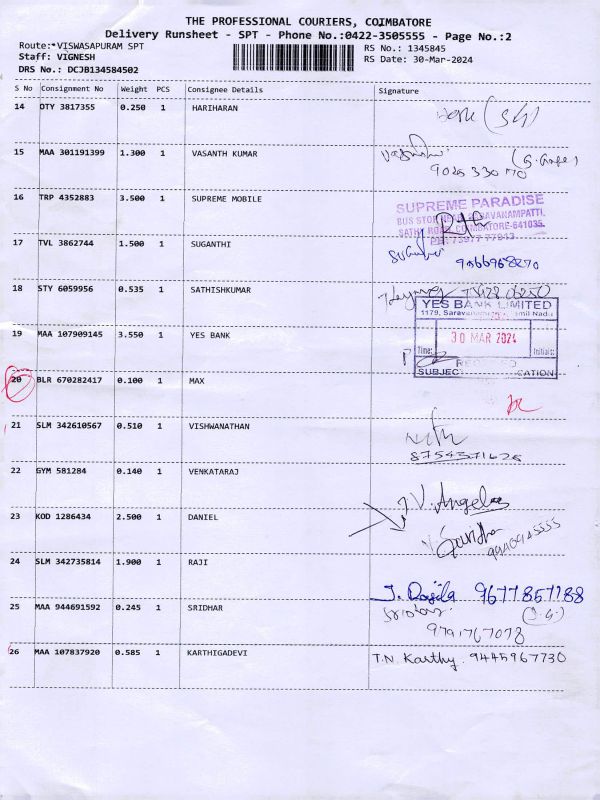 THE PROFESSIONAL COURIERS, COIMBATORE
Delivery Runsheet - SPT - Phone No.:0422-3505555 - Page No.:2
Route:*VISWASAPURAM SPT
RS No.: 1345845
Staff: VIGNESH
RS Date: 30-Mar-2024
DRS No.: DCJB134584502
S No Consignment No Weight PCS Consignee Details Signature
14 DTY 3817355 0.250 1 HARIHARAN
15 MAA 301191399 1.300 1 VASANTH KUMAR
16 TRP 4352883 3.500 1 SUPREME MOBILE
SUPREME PARADISE
17 TVL 3862744 1.500 1 SUGANTHI
9566968270
18 STY 6059956 0.535 1 SATHISHKUMAR
YES BANK LIMITED
19 MAA 107909145 3.550 1 YES BANK
30 MAR 2024
Time: Initials:
20 BLR 670282417 0.100 1 MAX
21 SLM 342610567 0.510 1 VISHWANATHAN
22 GYM 581284 0.140 1 VENKATARAJ
J.V. Angelas
23 KOD 1286434 2.500 1 DANIEL
24 SLM 342735814 1.900 1 RAJI
J. Dagila 9677857188
25 MAA 944691592 0.245 1 SRIDHAR
9791767078
26 MAA 107837920 0.585 1 KARTHIGADEVI T.N. Karthy. 9445967730